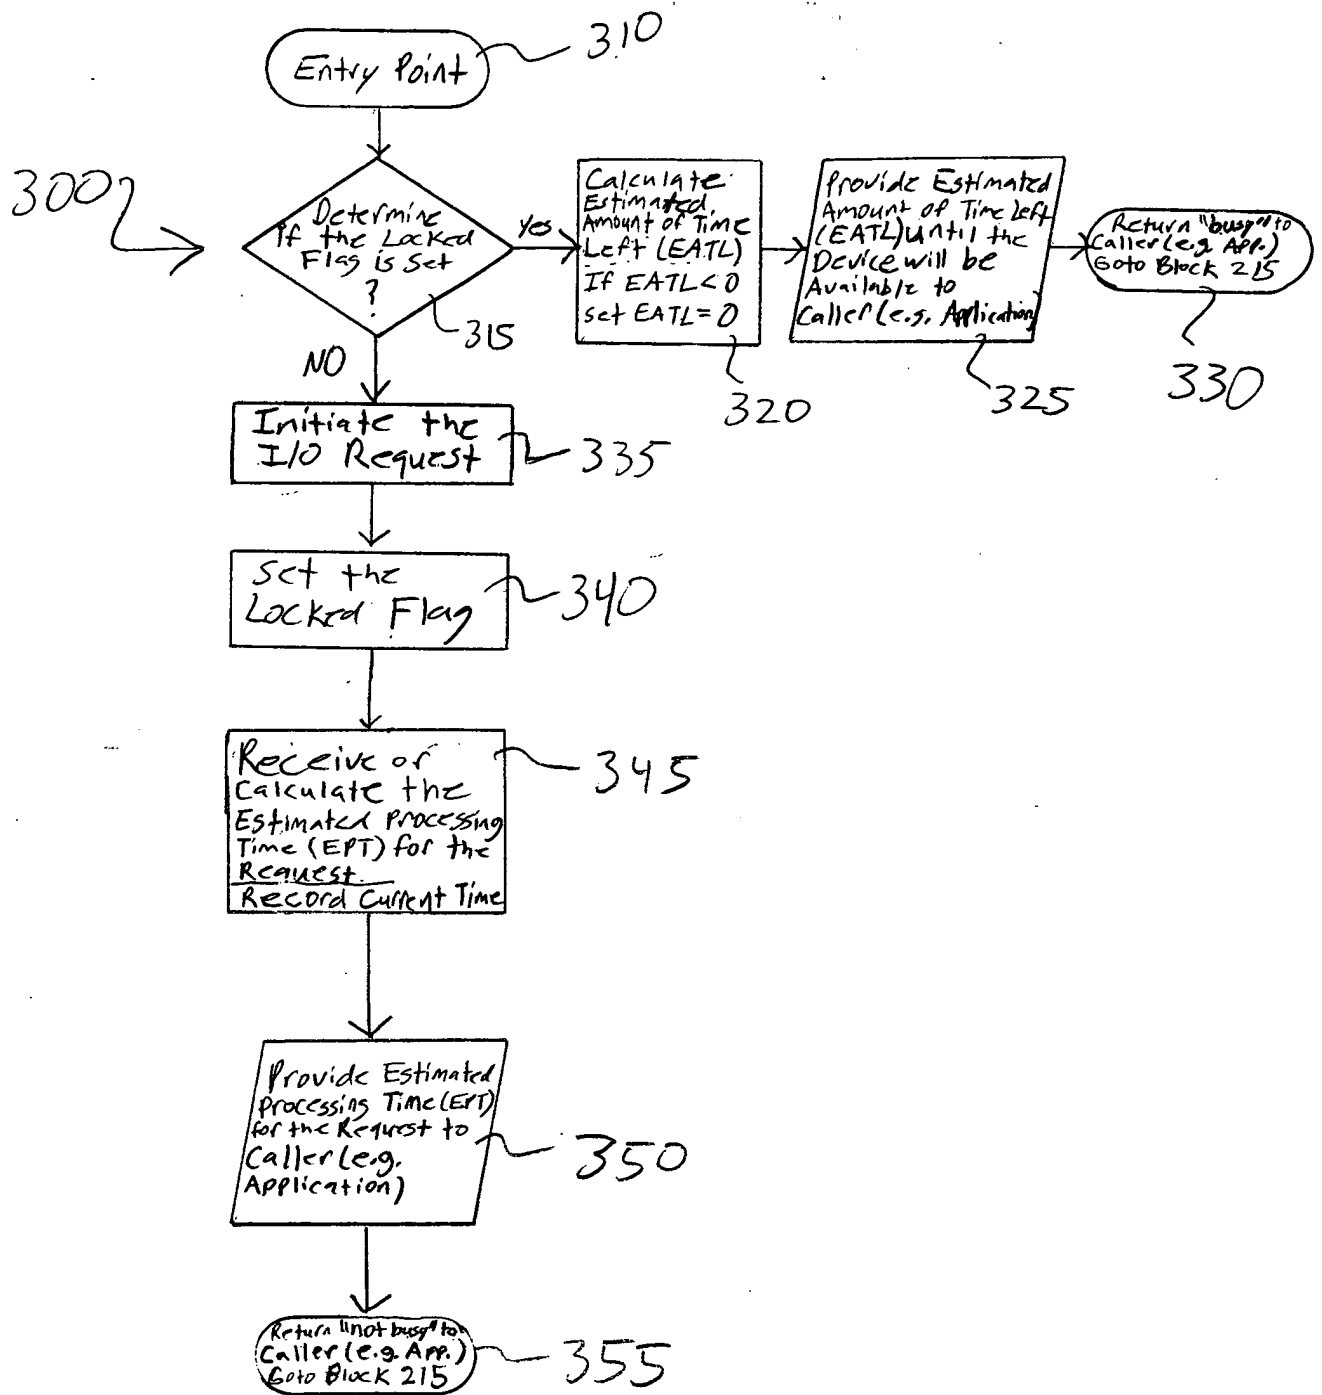 310
Entry Point
300
Determine
if the Locked
Flag is Set
?
315
Yes
Calculate
Estimated
Amount of Time
Left (EATL)
If EATL < 0
set EATL = 0
320
Provide Estimated
Amount of Time Left
(EATL) until the
Device will be
Available to
Caller (e.g. Application)
325
Return "busy" to
Caller (e.g. App.)
Goto Block 215
330
NO
Initiate the
I/O Request
335
Set the
Locked Flag
340
Receive or
Calculate the
Estimated Processing
Time (EPT) for the
Request.
Record Current Time
345
Provide Estimated
Processing Time (EPT)
for the Request to
Caller (e.g.
Application)
350
Return "not busy" to
Caller (e.g. App.)
Goto Block 215
355